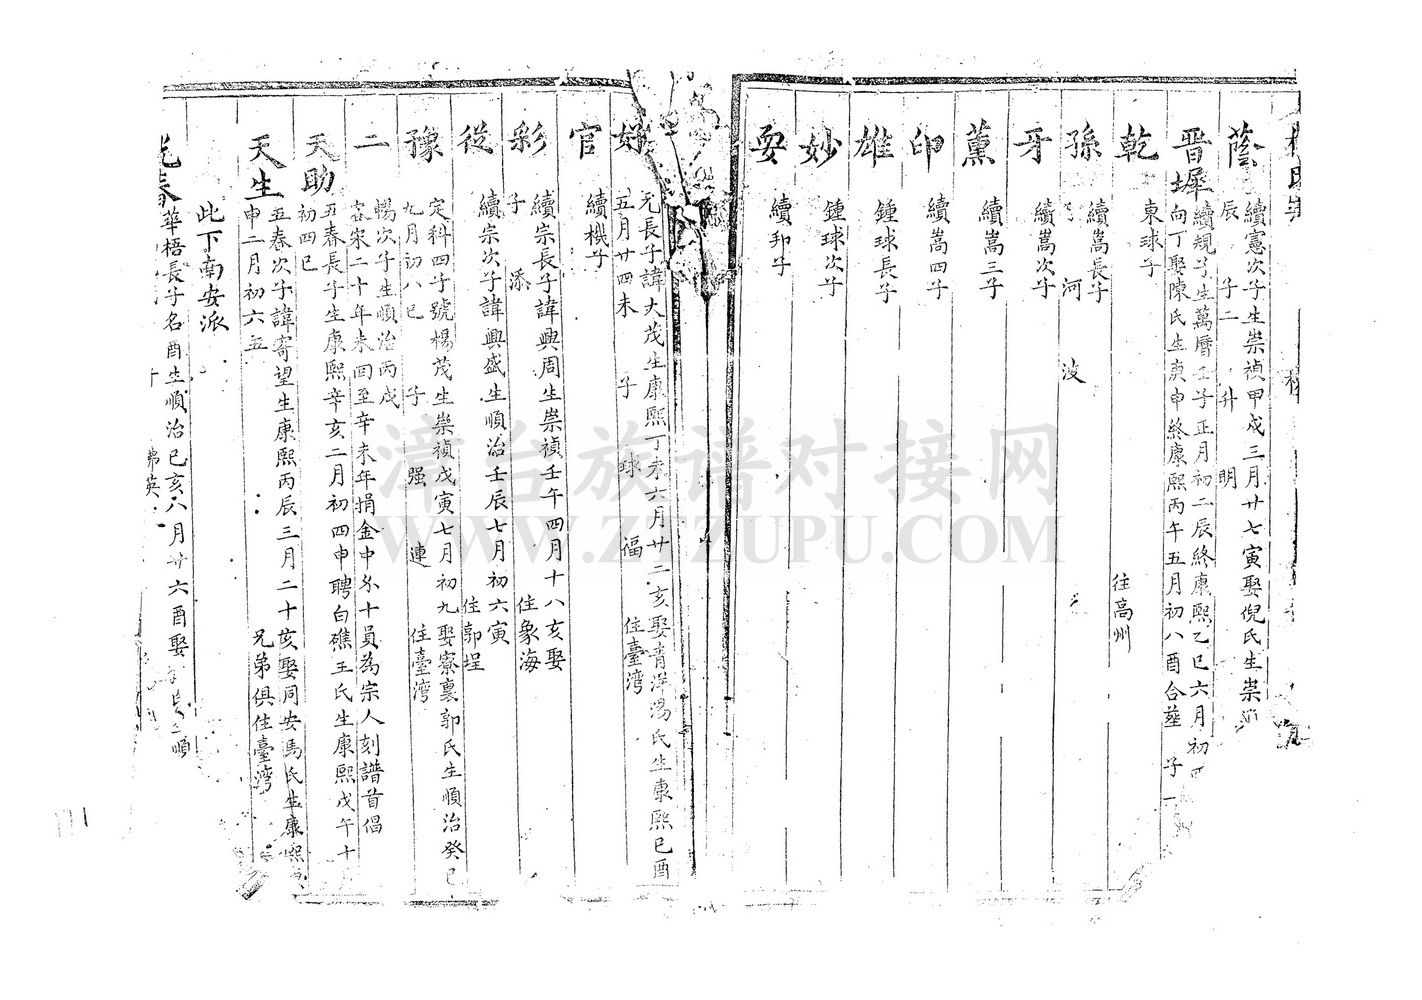 蔭 續憲次子生崇禎甲戌三月廿七寅娶倪氏生崇
辰 子二 升 明
晋墀 續規子生萬曆壬子正月初二辰終康熙乙巳六月初
向丁娶陳氏生庚申終康熙丙午五月初八酉合塟 子一
乾 東球子 往高州
孫 續嵩長子
子 河 波
牙 續嵩次子
薰 續嵩三子
印 續嵩四子
雄 鍾球長子
妙 鍾球次子
耍 續卯子
好 元長子諱大茂生康熙丁未六月廿二亥娶青洋湯氏生康熙已酉
五月廿四未 子 球 福 住臺湾
官 續機子
彩 續宗長子諱興周生崇禎壬午四月十八亥娶
子 添 住象海
從 續宗次子諱興盛生順治壬辰七月初六寅
住郭埕
豫 定科四子號楊茂生崇禎戊寅七月初九娶寮裏郭氏生順治癸巳
九月初八巳 子 强 連 住臺湾
二 暢次子生順治丙戌
客宋二十年未回至辛未年捐金中水十員為宗人刻譜首倡
天助 五春長子生康熙辛亥二月初四申聘白礁王氏生康熙戊午十
初四巳
天生 五春次子諱寄望生康熙丙辰三月二十亥娶同安馬氏生康熙
申二月初六丑 兄弟俱住臺湾
此下南安派
春 華梧長子名酉生順治已亥八月廿六酉娶
英
漳台族谱对接网
WWW.ZTZUPU.COM